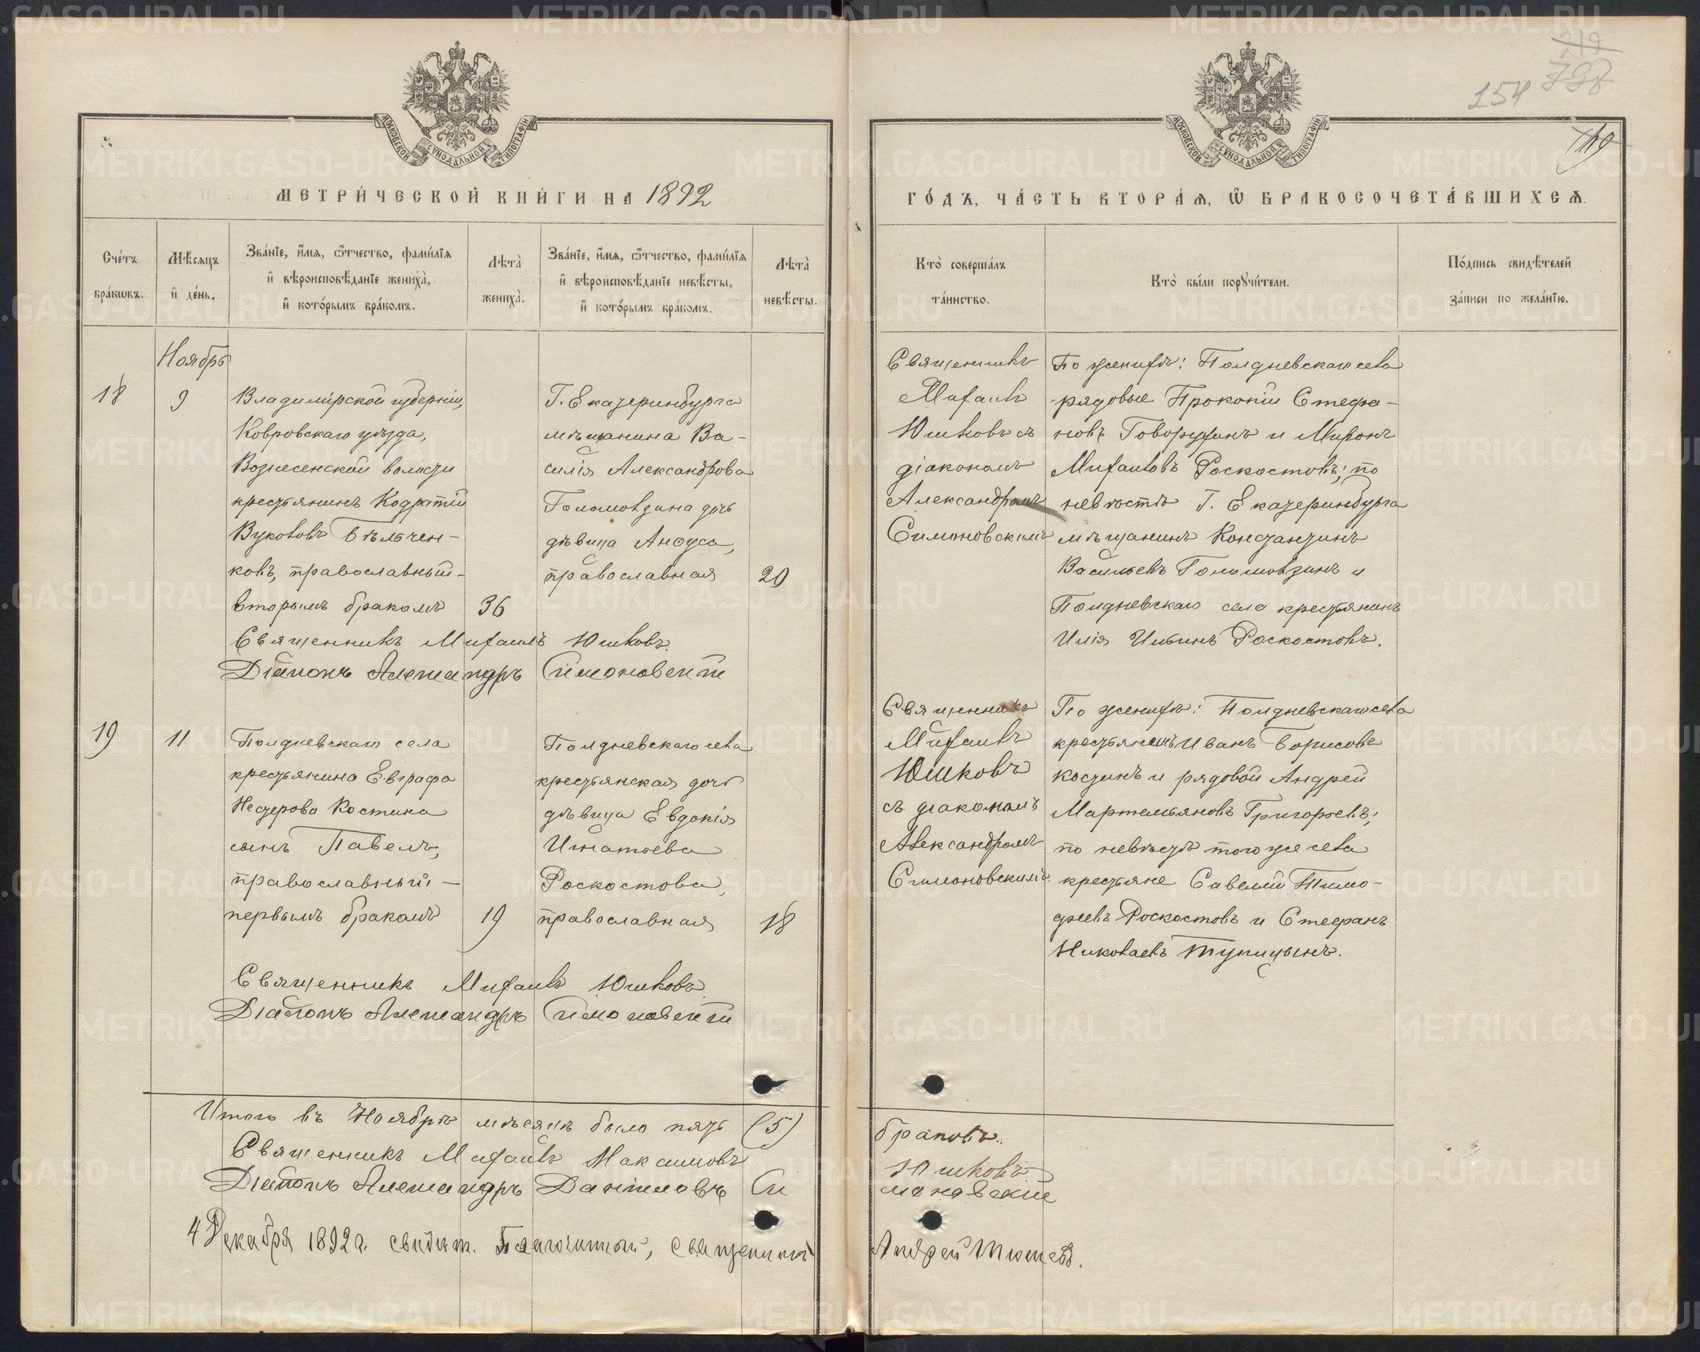 154
МЕТРИ́ЧЕСКОЙ КНИ́ГИ НА 1892
ГО́ДЪ, ЧА́СТЬ ВТОРА́Я, Ѿ БРАКОСОЧЕТА́ВШИХСЯ.
Сче́тъ бра́ковъ.
Мѣ́сяцъ и҆ де́нь.
Зва́нїе, и҆́мя, ѻ҆́тчество, фами́лїя
и҆ вѣроисповѣ́данїе жениха̀,
и҆ кото́рымъ бра́комъ.
Лѣта̀ жениха̀.
Зва́нїе, и҆́мя, ѻ҆́тчество, фами́лїя
и҆ вѣроисповѣ́данїе невѣ́сты,
и҆ кото́рымъ бра́комъ.
Лѣта̀ невѣ́сты.
Кто̀ соверша́лъ
та́инство.
Кто̀ бы́ли поручи́тели.
По́дпись свидѣ́телей
за́писи по жела́нїю.
Ноябрь
18
9
Владимірской губерніи,
Ковровскаго уѣзда,
Вознесенской волости
крестьянинъ Кодратій
Вуколовъ Бѣльчен-
ковъ, православный-
вторымъ бракомъ
36
Г. Екатеринбурга
мѣщанина Ва-
силія Александрова
Голомовзина дочь
дѣвица Анѳуса,
православная
20
Священникъ Михаилъ Юшковъ.
Діаконъ Александръ Симоновскій
Священникъ
Михаилъ
Юшковъ съ
діакономъ
Александромъ
Симоновскимъ
По женихѣ: Полдневскаго села
рядовые Прокопій Стефа-
новъ Говорухинъ и Миронъ
Михаиловъ Роскостовъ; по
невѣстѣ Г. Екатеринбурга
мѣщанинъ Константинъ
Васильевъ Голомовзинъ и
Полдневскаго села крестьянинъ
Илія Ильинъ Роскостовъ.
19
11
Полдневскаго села
крестьянина Евграфа
Нестерова Костина
сынъ Павелъ,
православный-
первымъ бракомъ
19
Полдневскаго села
крестьянская дочь
дѣвица Евдокія
Игнатьева
Роскостова,
православная
18
Священникъ Михаилъ Юшковъ
Діаконъ Александръ Симоновскій
Священникъ
Михаилъ
Юшковъ
съ діакономъ
Александромъ
Симоновскимъ
По женихѣ: Полдневскаго села
крестьянинъ Иванъ Борисовъ
Костинъ и рядовой Андрей
Мартемьяновъ Григорьевъ;
по невѣстѣ того же села
крестьяне Савелій Тимо-
феевъ Роскостовъ и Стефанъ
Николаевъ Тупицынъ.
Итого въ Ноябрѣ мѣсяцѣ было пять (5) браковъ.
Священникъ Михаилъ Максимовъ Юшковъ
Діаконъ Александръ Даніиловъ Симоновскій
4 Декабря 1892 г. свидѣт. Благочинный, Священникъ Андрей